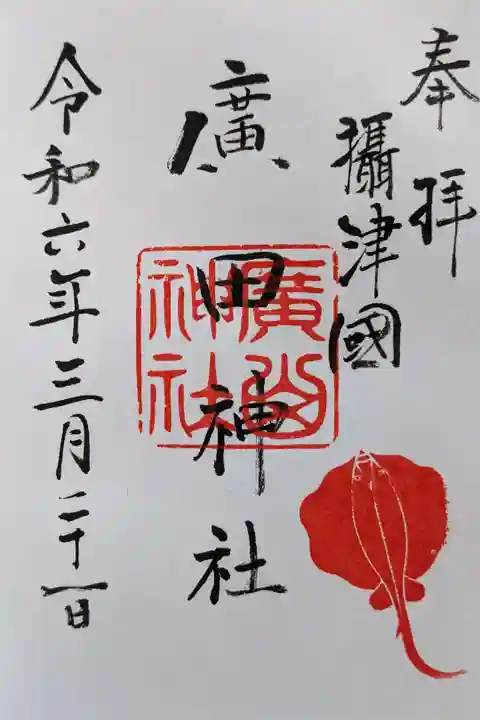 奉拝
攝津國
廣田神社
廣田神社
令和六年三月二十一日